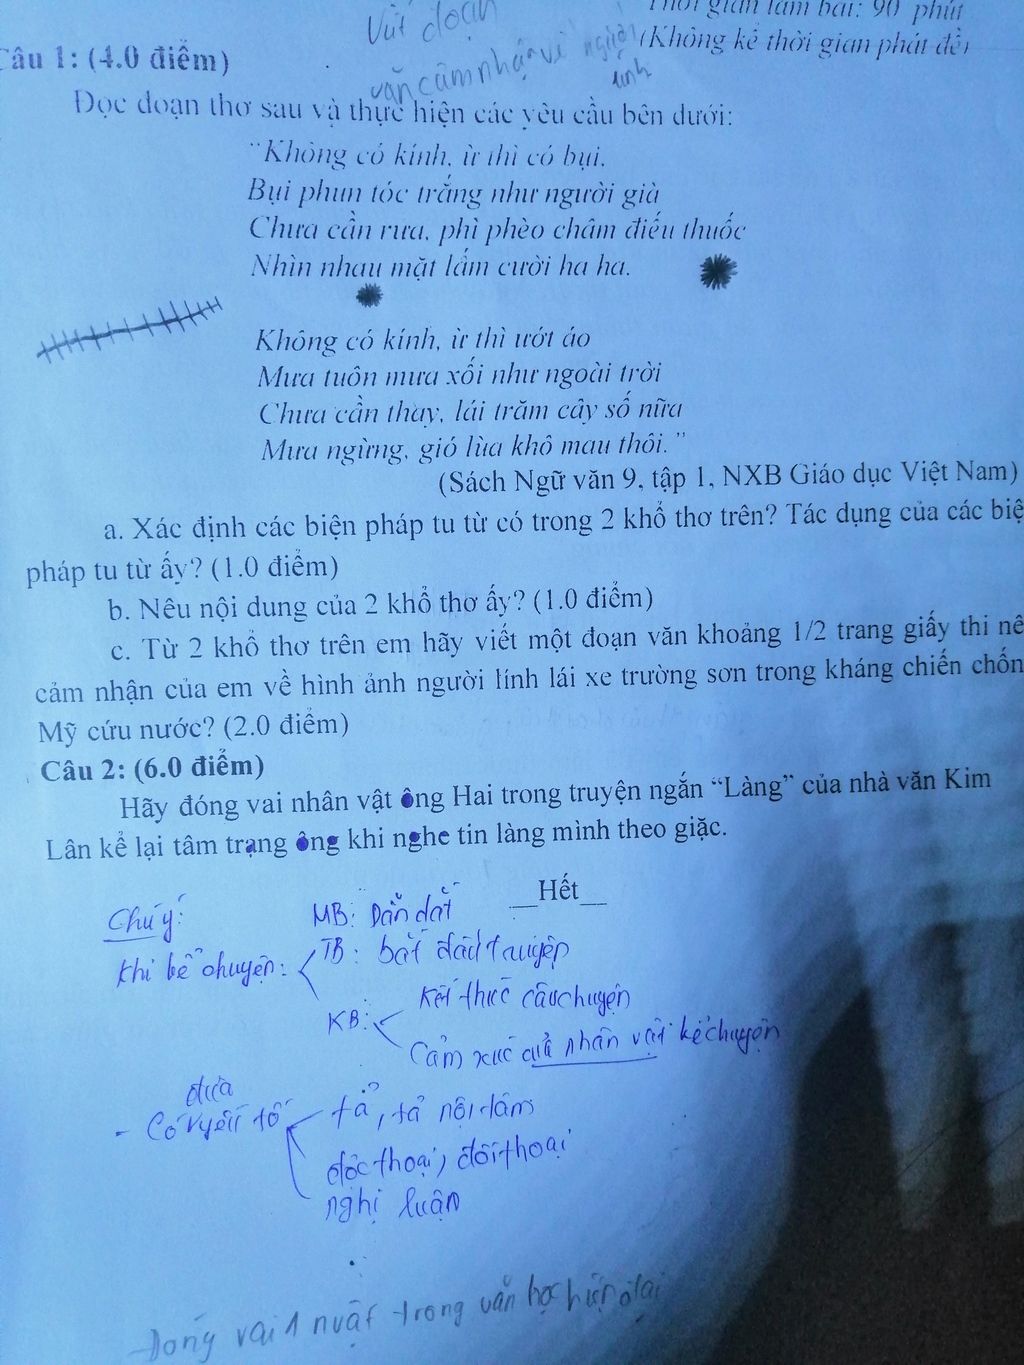 Thời gian làm bài: 90 phút
(Không kể thời gian phát đề)
Viết đoạn
văn cảm nhận về người
lính
Câu 1: (4.0 điểm)
Đọc đoạn thơ sau và thực hiện các yêu cầu bên dưới:
"Không có kính, ừ thì có bụi,
Bụi phun tóc trắng như người già
Chưa cần rửa, phì phèo châm điếu thuốc
Nhìn nhau mặt lấm cười ha ha.
Không có kính, ừ thì ướt áo
Mưa tuôn mưa xối như ngoài trời
Chưa cần thay, lái trăm cây số nữa
Mưa ngừng, gió lùa khô mau thôi."
(Sách Ngữ văn 9, tập 1, NXB Giáo dục Việt Nam)
a. Xác định các biện pháp tu từ có trong 2 khổ thơ trên? Tác dụng của các biệ
pháp tu từ ấy? (1.0 điểm)
b. Nêu nội dung của 2 khổ thơ ấy? (1.0 điểm)
c. Từ 2 khổ thơ trên em hãy viết một đoạn văn khoảng 1/2 trang giấy thi nê
cảm nhận của em về hình ảnh người lính lái xe trường sơn trong kháng chiến chốn
Mỹ cứu nước? (2.0 điểm)
Câu 2: (6.0 điểm)
Hãy đóng vai nhân vật ông Hai trong truyện ngắn "Làng" của nhà văn Kim
Lân kể lại tâm trạng ông khi nghe tin làng mình theo giặc.
__Hết__
Chú ý:
MB: Dẫn dắt
Khi kể chuyện: TB: bắt đầu truyện
KB: Kết thúc câu chuyện
Cảm xúc của nhân vật kể chuyện
đưa
- Có yếu tố tả, tả nội tâm
độc thoại, đối thoại
nghị luận
- Đóng vai 1 nvật trong văn học hiện đại